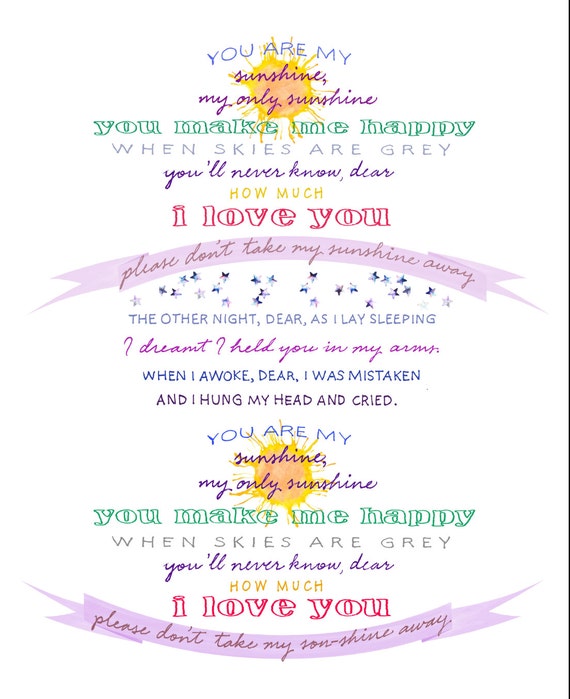 YOU ARE MY
sunshine,
my only sunshine
you make me happy
WHEN SKIES ARE GREY
you'll never know, dear
HOW MUCH
i love you
please don't take my sunshine away
THE OTHER NIGHT, DEAR, AS I LAY SLEEPING
I dreamt I held you in my arms.
WHEN I AWOKE, DEAR, I WAS MISTAKEN
AND I HUNG MY HEAD AND CRIED.
YOU ARE MY
sunshine,
my only sunshine
you make me happy
WHEN SKIES ARE GREY
you'll never know, dear
HOW MUCH
i love you
please don't take my son-shine away